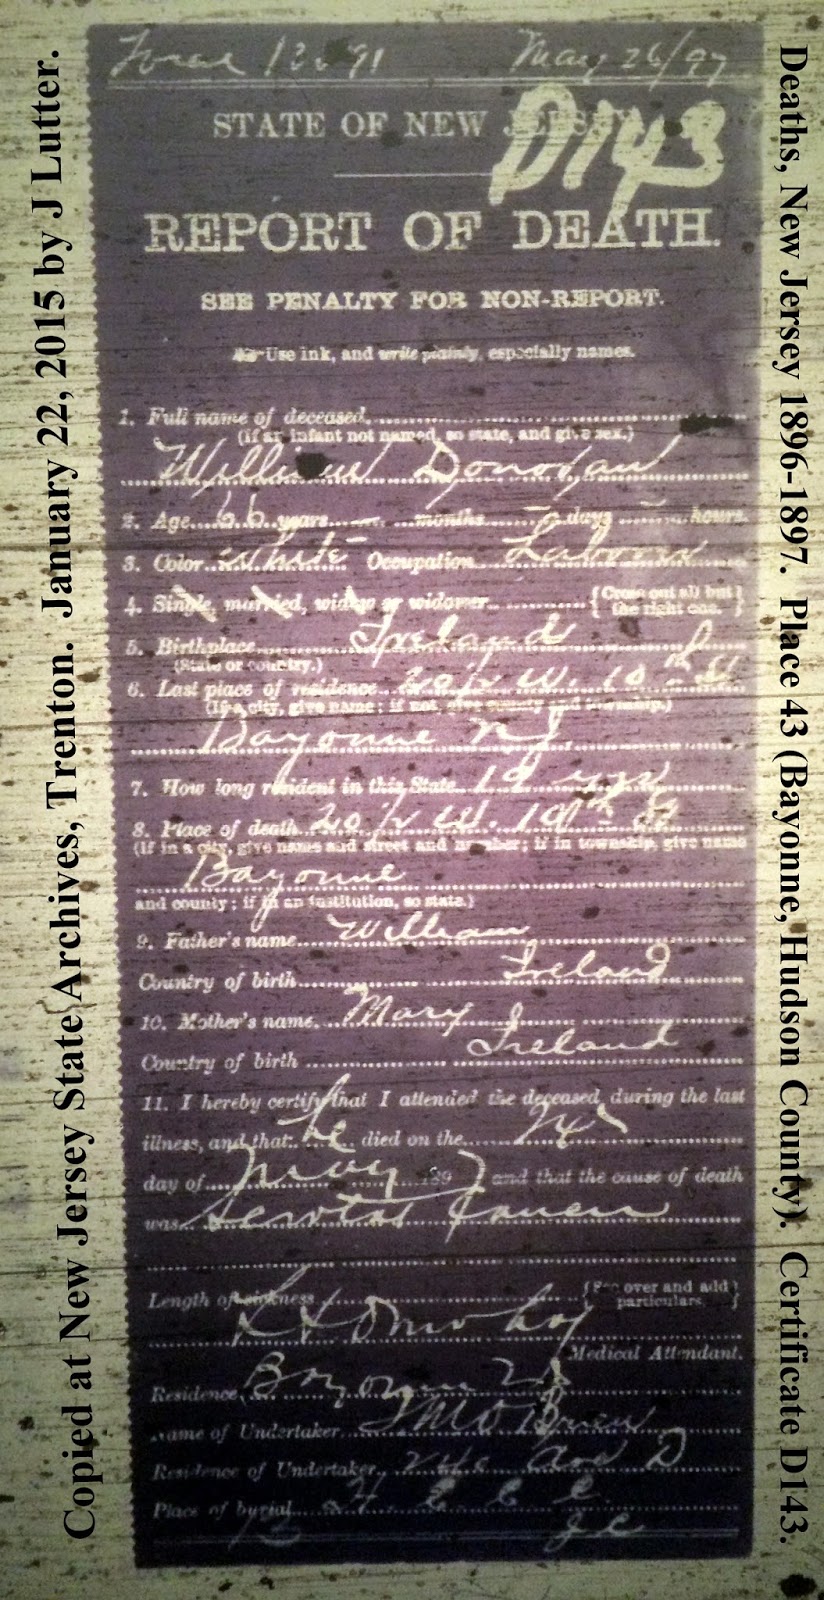 Copied at New Jersey State Archives, Trenton. January 22, 2015 by J Lutter.
Deaths, New Jersey 1896-1897. Place 43 (Bayonne, Hudson County). Certificate D143.
May 26/97
STATE OF NEW JERSEY
D143
REPORT OF DEATH.
SEE PENALTY FOR NON-REPORT.
Use ink, and write plainly, especially names.
1. Full name of deceased,
(If an infant not named, so state, and give sex.)
William Donovan
2. Age 66 years months days hours.
3. Color White Occupation Laborer
4. Single, married, widow or widower {Cross out all but the right one.}
5. Birthplace Ireland
(State or country.)
6. Last place of residence 20½ W. 10th St
(If a city, give name; if not, give county and township.)
Bayonne NJ
7. How long resident in this State 19 yrs
8. Place of death 20½ W. 10th St
(If in a city, give name and street and number; if in township, give name
Bayonne
and county; if in an institution, so state.)
9. Father's name William
Country of birth Ireland
10. Mother's name Mary
Country of birth Ireland
11. I hereby certify that I attended the deceased during the last
illness, and that he died on the 24
day of May 1897 and that the cause of death
was
Length of sickness {See over and add particulars.}
Medical Attendant.
Residence Bayonne NJ
Name of Undertaker O'Brien
Residence of Undertaker Ave D
Place of burial
J C